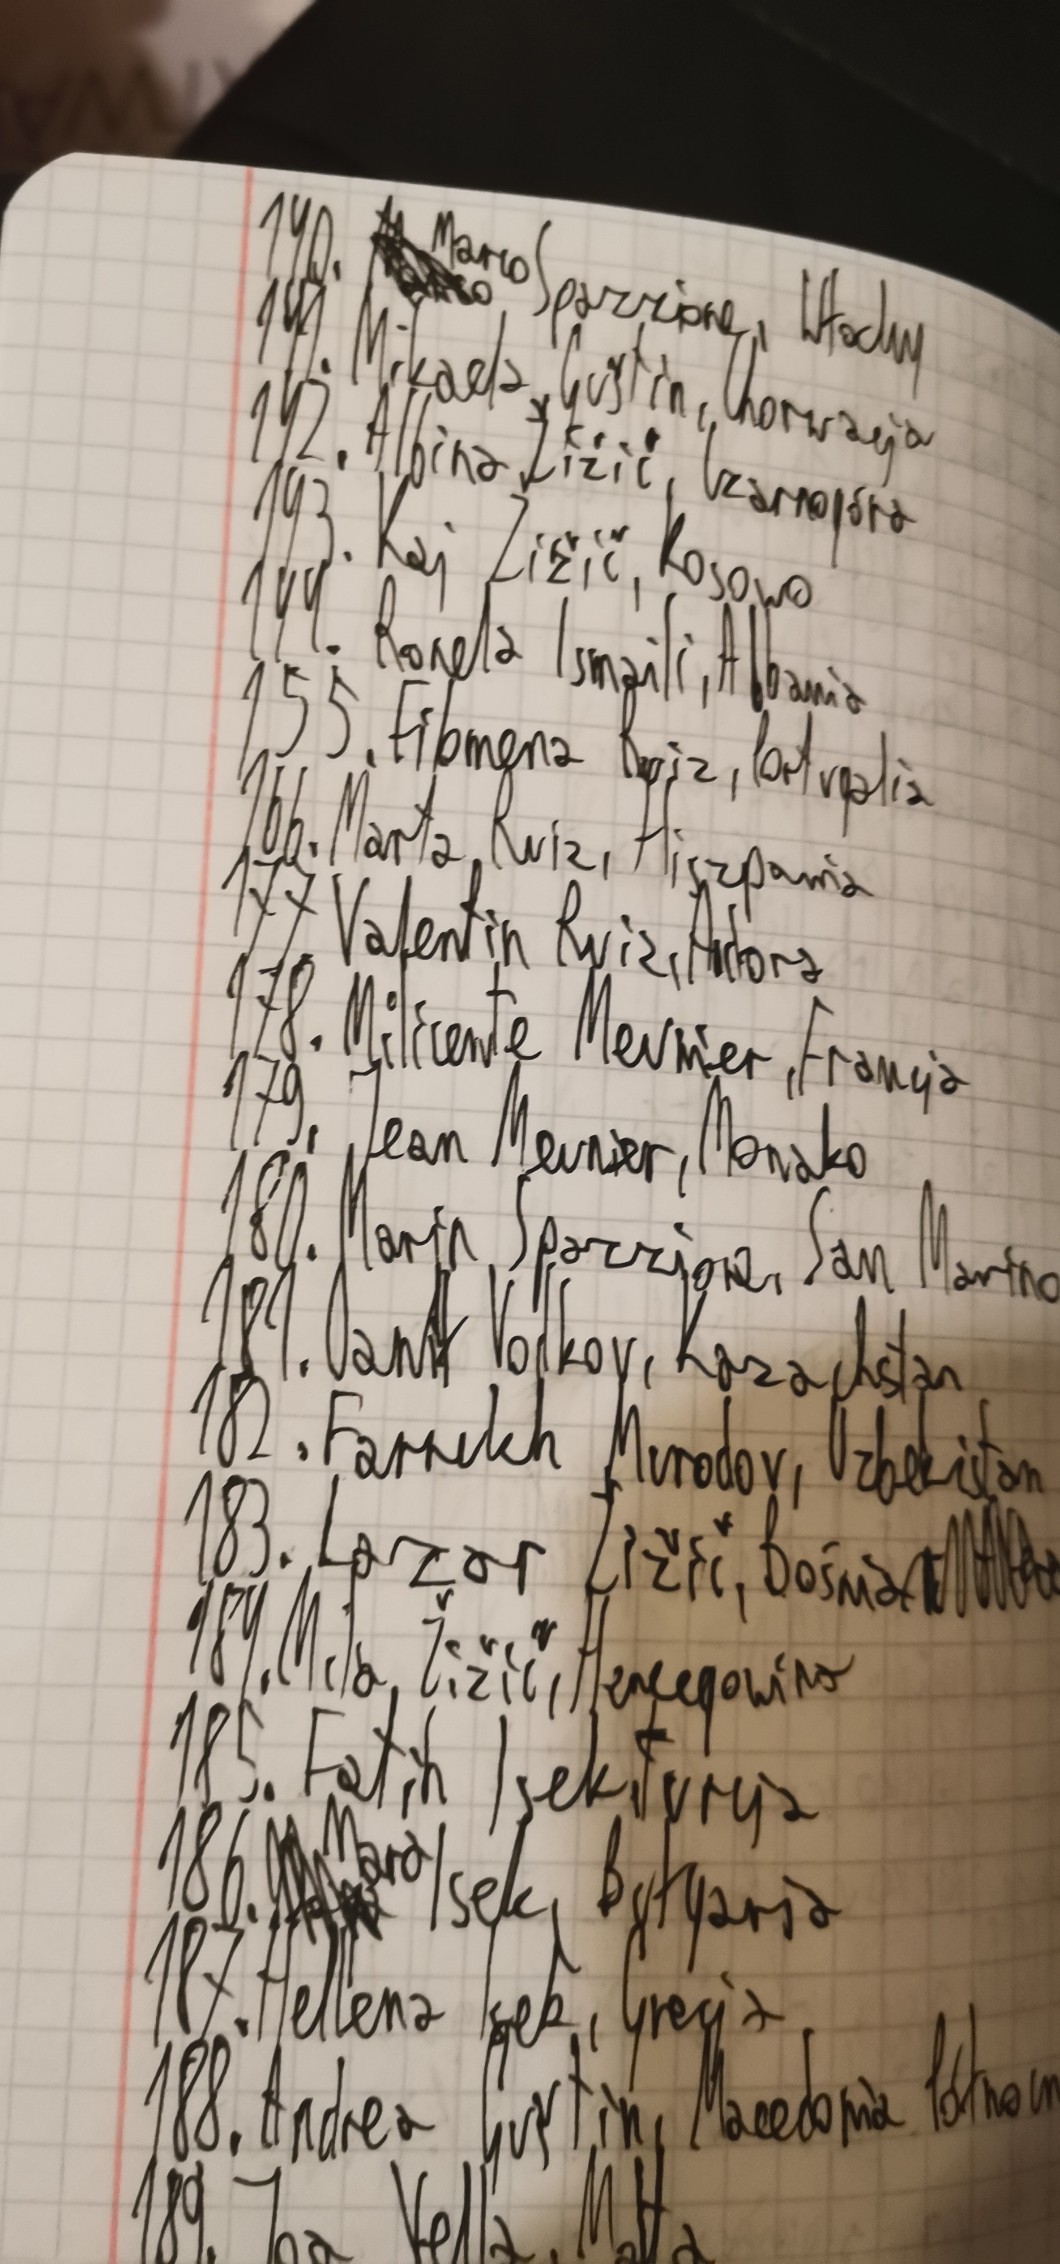 140. Marco Spazzione, Włochy
141. Mikaela Guštin, Chorwacja
142. Albina Žižić, Czarnogóra
143. Kaj Žižič, Kosowo
144. Ronela Ismaili, Albania
155. Filomena Ruiz, Portugalia
166. Marta Ruiz, Hiszpania
177. Valentin Ruiz, Andora
178. Milicente Meunier, Francja
179. Jean Meunier, Monako
180. Marin Spazzione, San Marino
181. Volkov, Kazachstan
182. Farrukh Murodov, Uzbekistan
183. Lazar Žižič, Bośnia
184. Mila Žižič, Hercegowina
185. Fatih Isek, Turcja
186. Mara Isek, Bułgaria
187. Hellena Isek, Grecja
188. Andrea Guštin, Macedonia
189. Vella, Malta